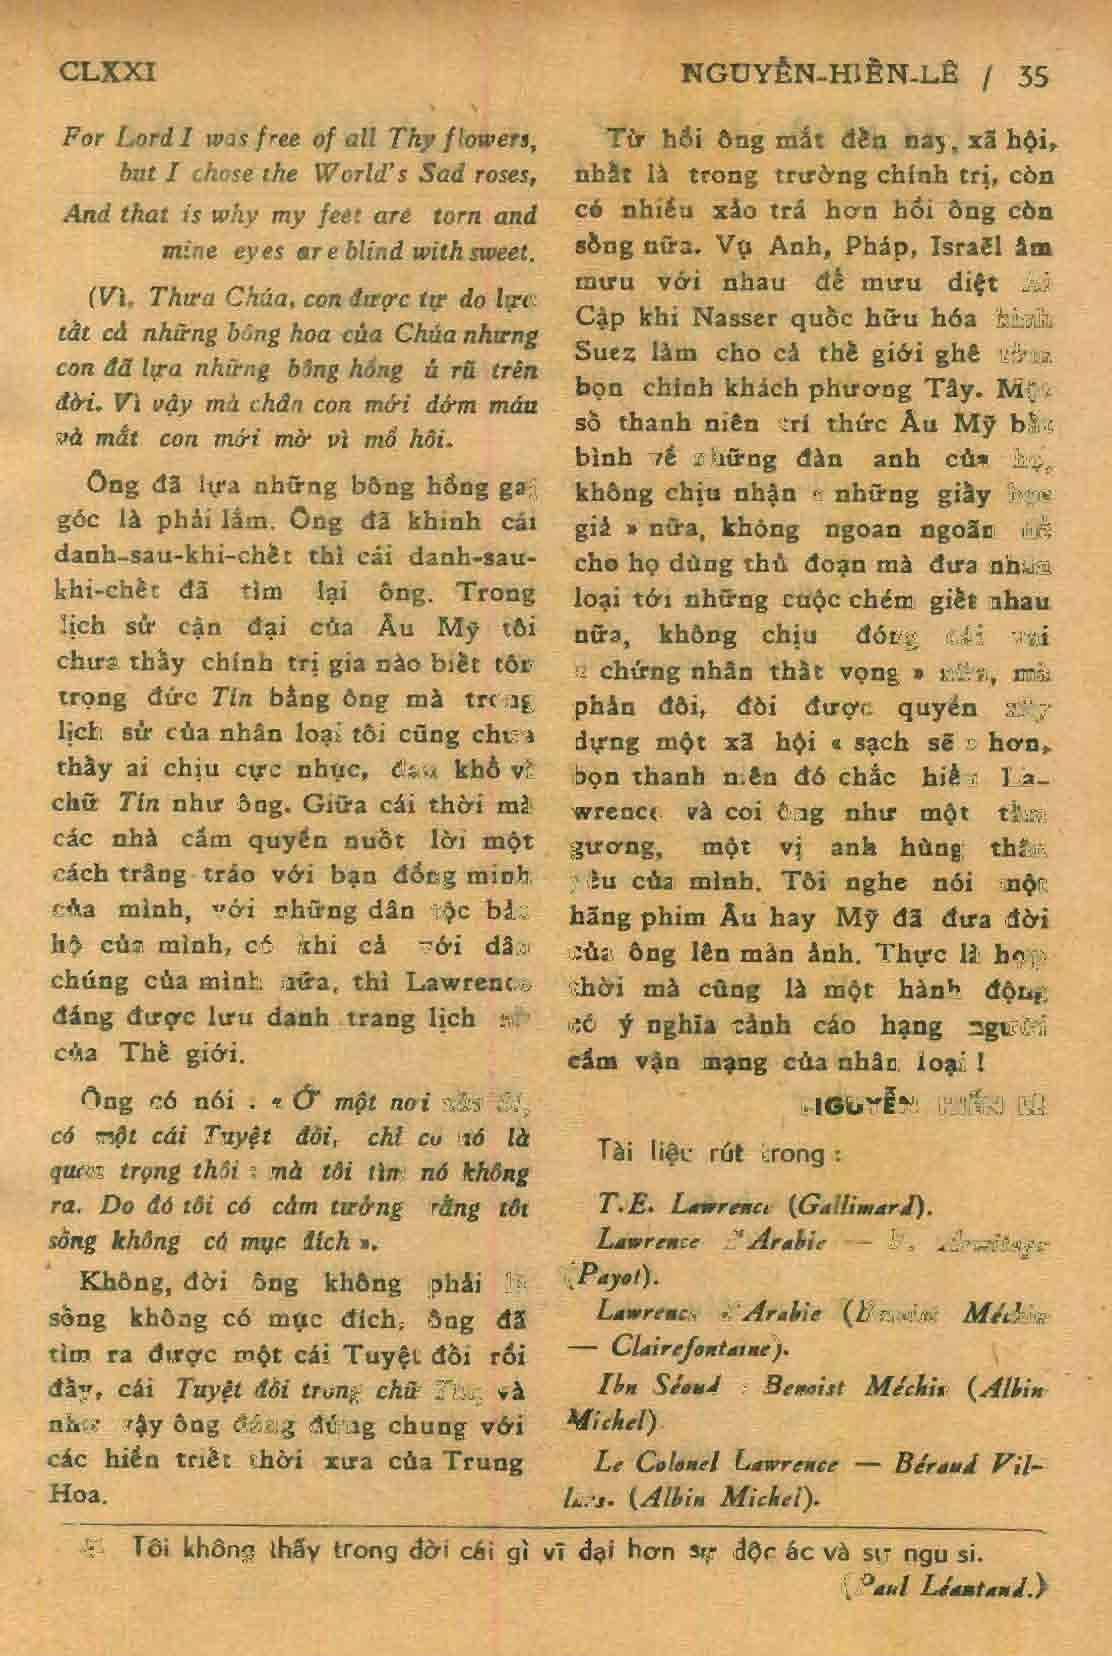 CLXXI
NGUYỄN-HIẾN-LÊ / 35
For Lord I was free of all Thy flowers,
but I chose the World's Sad roses,
And that is why my feet are torn and
mine eyes are blind with sweet.
(Vì, Thưa Chúa, con được tự do lựa
tất cả những bông hoa của Chúa nhưng
con đã lựa những bông hồng ủ rũ trên
đời. Vì vậy mà chân con mới dớm máu
và mắt con mới mờ vì mồ hôi.
Ông đã lựa những bông hồng gai
góc là phải lắm. Ông đã khinh cái
danh-sau-khi-chết thì cái danh-sau-
khi-chết đã tìm lại ông. Trong
lịch sử cận đại của Âu Mỹ tôi
chưa thấy chính trị gia nào biết tôn
trọng đức Tín bằng ông mà trong
lịch sử của nhân loại tôi cũng chưa
thấy ai chịu cực nhục, đau khổ vì
chữ Tín như ông. Giữa cái thời mà
các nhà cầm quyền nuốt lời một
cách trâng tráo với bạn đồng minh
của mình, với những dân tộc bảo
hộ của mình, có khi cả với dân
chúng của mình nữa, thì Lawrence
đáng được lưu danh trang lịch sử
của Thế giới.
Ông có nói : « Ở một nơi
có một cái Tuyệt đối, chỉ có nó là
quan trọng thôi : mà tôi tìm nó không
ra. Do đó tôi có cảm tưởng rằng tôi
sống không có mục đích ».
Không, đời ông không phải là
sống không có mục đích, ông đã
tìm ra được một cái Tuyệt đối rồi
đấy, cái Tuyệt đối trong chữ Tín, và
như vậy ông đáng đứng chung với
các hiền triết thời xưa của Trung
Hoa.
Từ hồi ông mất đến nay, xã hội,
nhất là trong trường chính trị, còn
có nhiều xảo trá hơn hồi ông còn
sống nữa. Vụ Anh, Pháp, Israël âm
mưu với nhau để mưu diệt Ai
Cập khi Nasser quốc hữu hóa kinh
Suez làm cho cả thế giới ghê tởm
bọn chính khách phương Tây. Một
số thanh niên trí thức Âu Mỹ bất
bình về những đàn anh của họ,
không chịu nhận « những giấy học
giả » nữa, không ngoan ngoãn để
cho họ dùng thủ đoạn mà đưa nhân
loại tới những cuộc chém giết nhau
nữa, không chịu đóng cái vai
« chứng nhân thất vọng » nữa, mà
phản đối, đòi được quyền xây
dựng một xã hội « sạch sẽ » hơn,
bọn thanh niên đó chắc hiểu La-
wrence và coi ông như một tấm
gương, một vị anh hùng thân
yêu của mình. Tôi nghe nói một
hãng phim Âu hay Mỹ đã đưa đời
của ông lên màn ảnh. Thực là hợp
thời mà cũng là một hành động
có ý nghĩa cảnh cáo hạng người
cầm vận mạng của nhân loại !
NGUYỄN HIẾN LÊ
Tài liệu rút trong :
T.E. Lawrence (Gallimard).
Lawrence d'Arabie — Armitage
(Payot).
Lawrence d'Arabie (Benoist Méchin
— Clairefontaine).
Ibn Séoud : Benoist Méchin (Albin
Michel)
Le Colonel Lawrence — Béraud Vil-
lars. (Albin Michel).
Tôi không thấy trong đời cái gì vĩ đại hơn sự độc ác và sự ngu si.
(Paul Léautaud.)